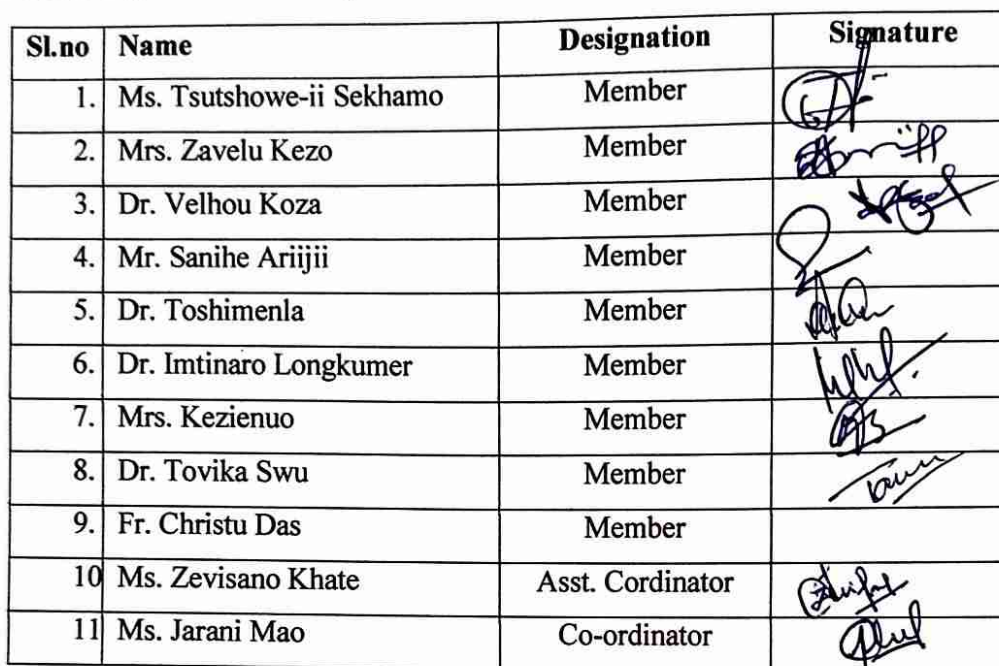 Sl.no Name Designation Signature
1. Ms. Tsutshowe-ii Sekhamo Member
2. Mrs. Zavelu Kezo Member
3. Dr. Velhou Koza Member
4. Mr. Sanihe Ariijii Member
5. Dr. Toshimenla Member
6. Dr. Imtinaro Longkumer Member
7. Mrs. Kezienuo Member
8. Dr. Tovika Swu Member
9. Fr. Christu Das Member
10 Ms. Zevisano Khate Asst. Cordinator
11 Ms. Jarani Mao Co-ordinator